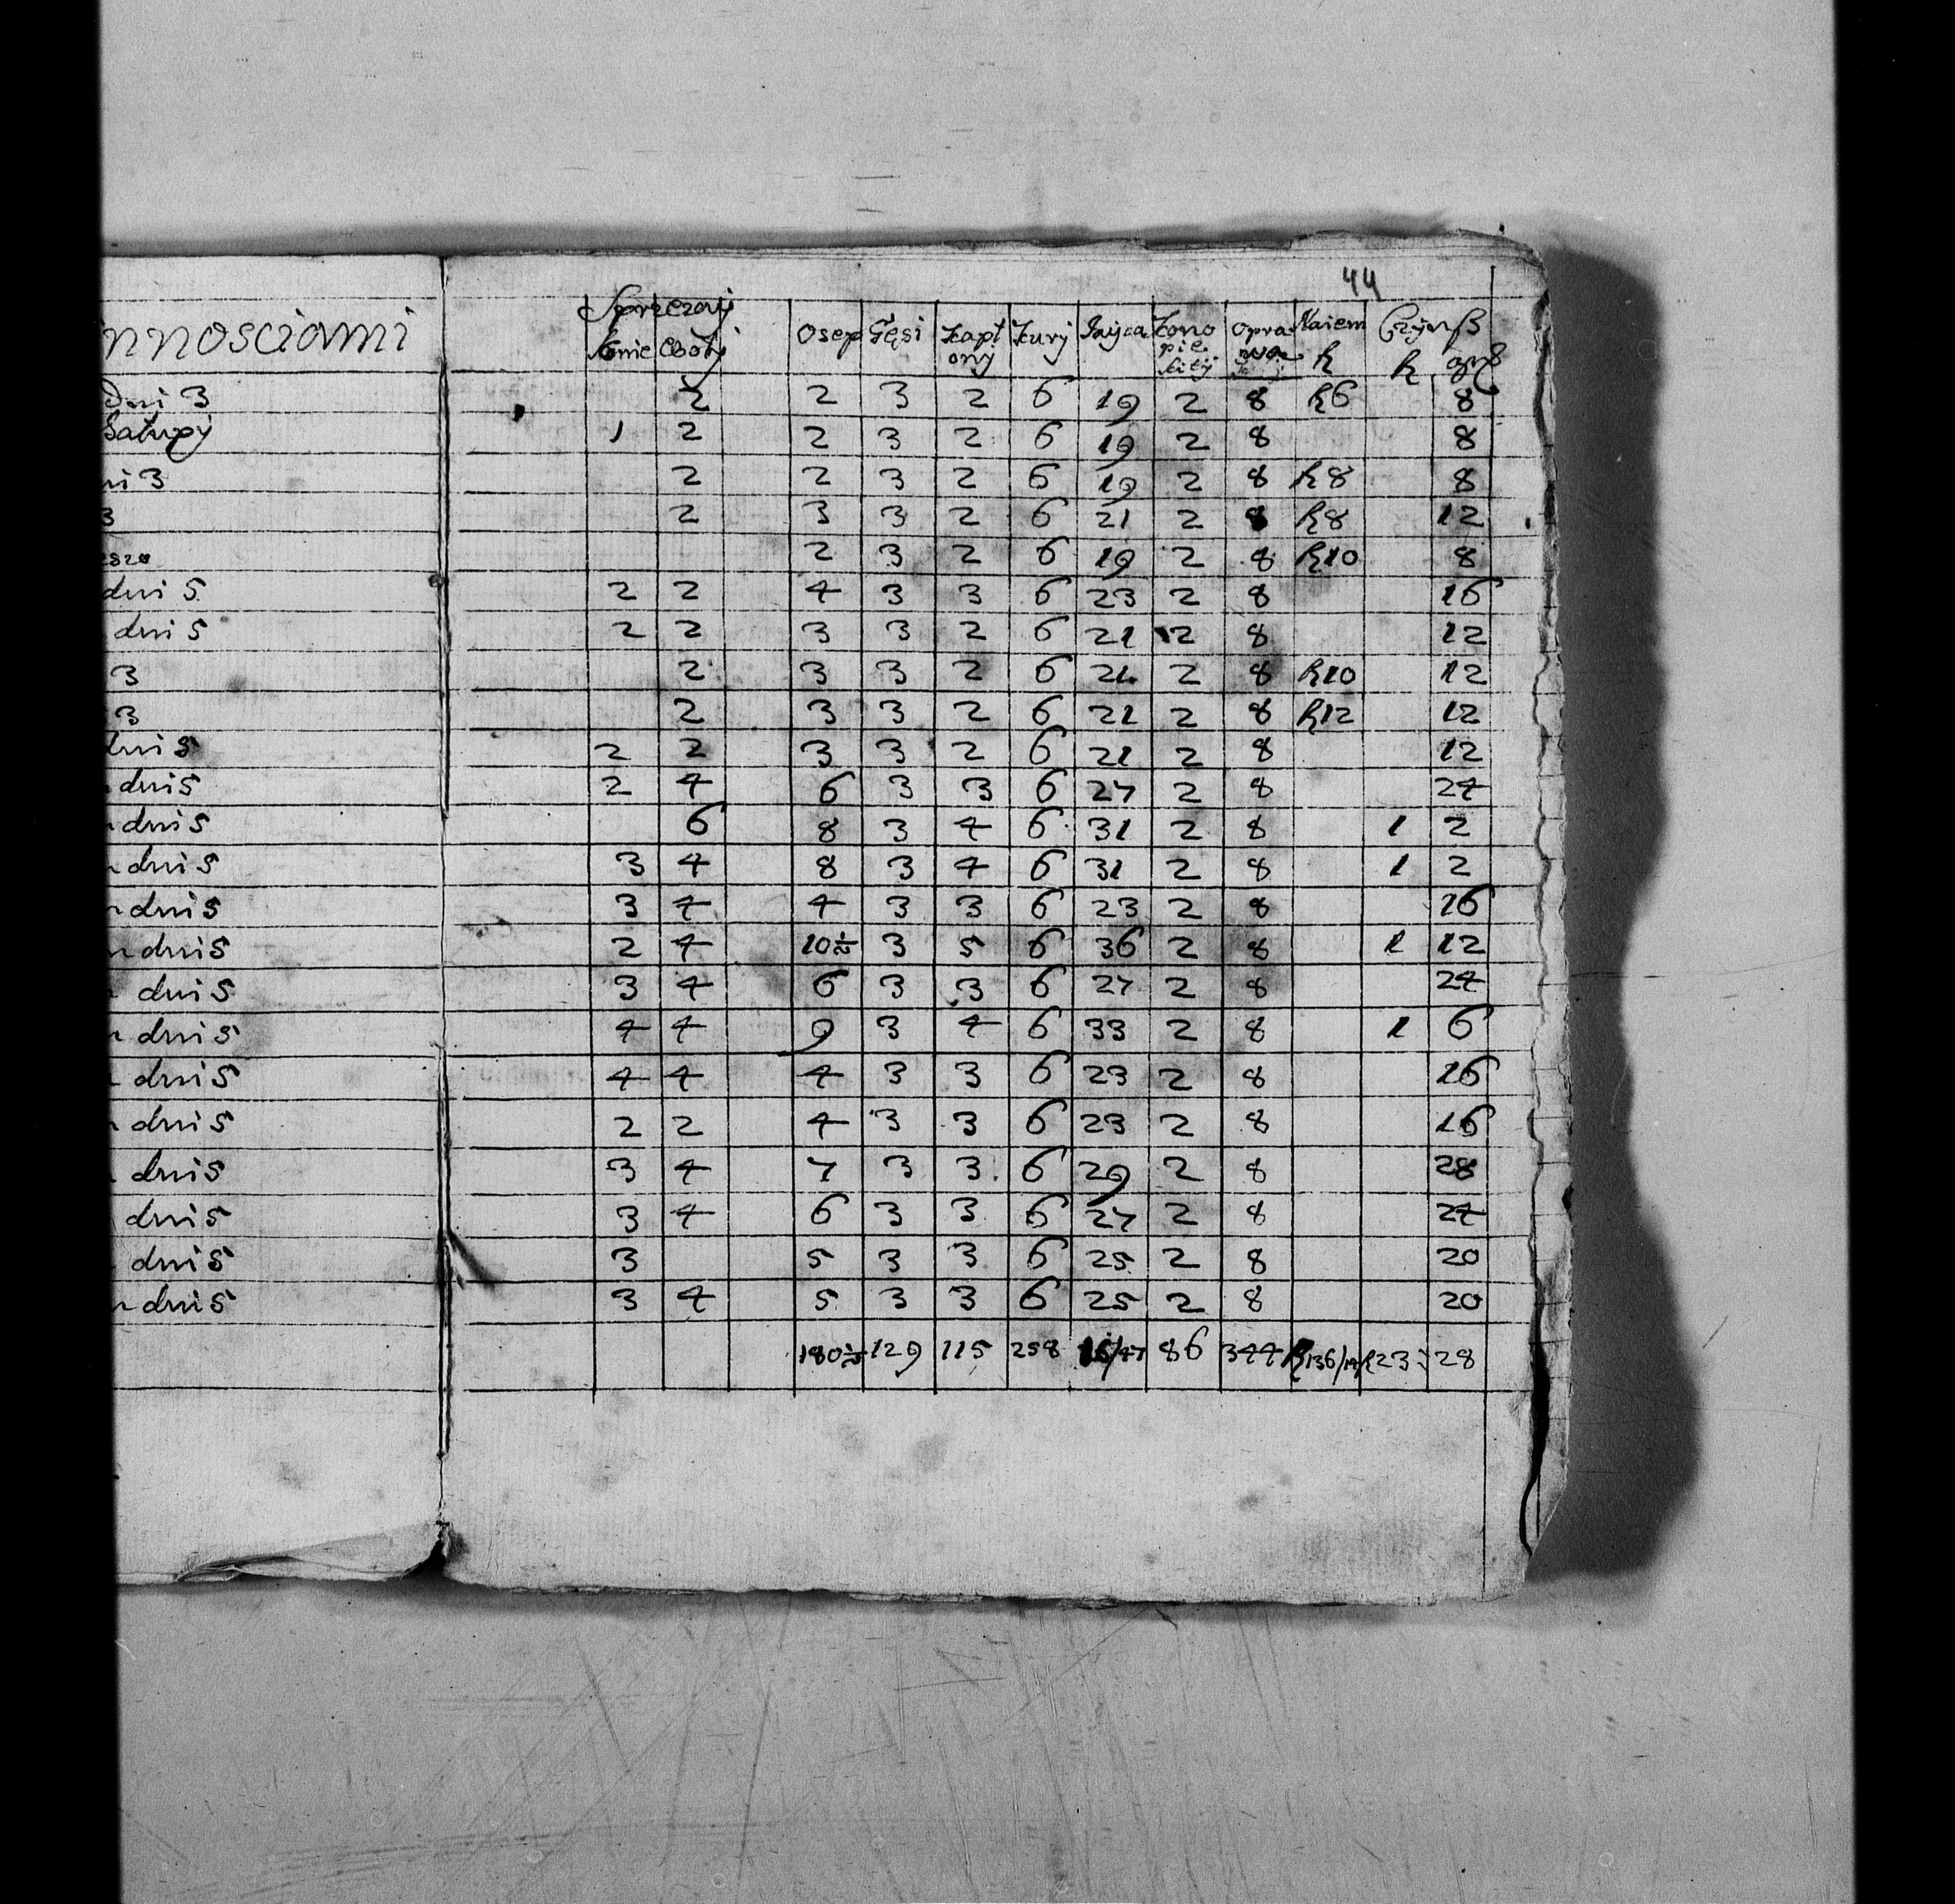 44
nnosciami Sprzezaj Osep Gęsi Kapł Kury Jayca Kono Opra Naiem Czynß
Konie Woły ony pie wa ꝛ ꝛ gr
Dni 3 2 2 3 2 6 19 2 8 ꝛ6 8
1 2 2 3 2 6 19 2 8 8
ni 3 2 2 3 2 6 19 2 8 ꝛ8 8
3 2 3 3 2 6 21 2 8 ꝛ8 12
2 3 2 6 19 2 8 ꝛ10 8
dni 5 2 2 4 3 3 6 23 2 8 16
dni 5 2 2 3 3 2 6 21 2 8 12
3 2 3 3 2 6 21 2 8 ꝛ10 12
3 2 3 3 2 6 21 2 8 ꝛ12 12
dni 5 2 2 3 3 2 6 21 2 8 12
dni 5 2 4 6 3 3 6 27 2 8 24
dni 5 6 8 3 4 6 31 2 8 1 2
dni 5 3 4 8 3 4 6 31 2 8 1 2
dni 5 3 4 4 3 3 6 23 2 8 16
dni 5 2 4 10½ 3 5 6 36 2 8 1 12
dni 5 3 4 6 3 3 6 27 2 8 24
dni 5 4 4 9 3 4 6 33 2 8 1 6
dni 5 4 4 4 3 3 6 23 2 8 16
dni 5 2 2 4 3 3 6 23 2 8 16
dni 5 3 4 7 3 3 6 29 2 8 28
dni 5 3 4 6 3 3 6 27 2 8 24
dni 5 3 5 3 3 6 25 2 8 20
dni 5 3 4 5 3 3 6 25 2 8 20
180½ 129 115 258 16/47 86 344 ꝛ136/14 ꝛ23 : 28